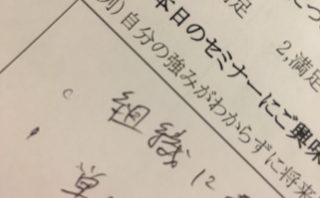 2,満足
満足
本日のセミナーにご興味
例）自分の強みがわからずに将来
組織に